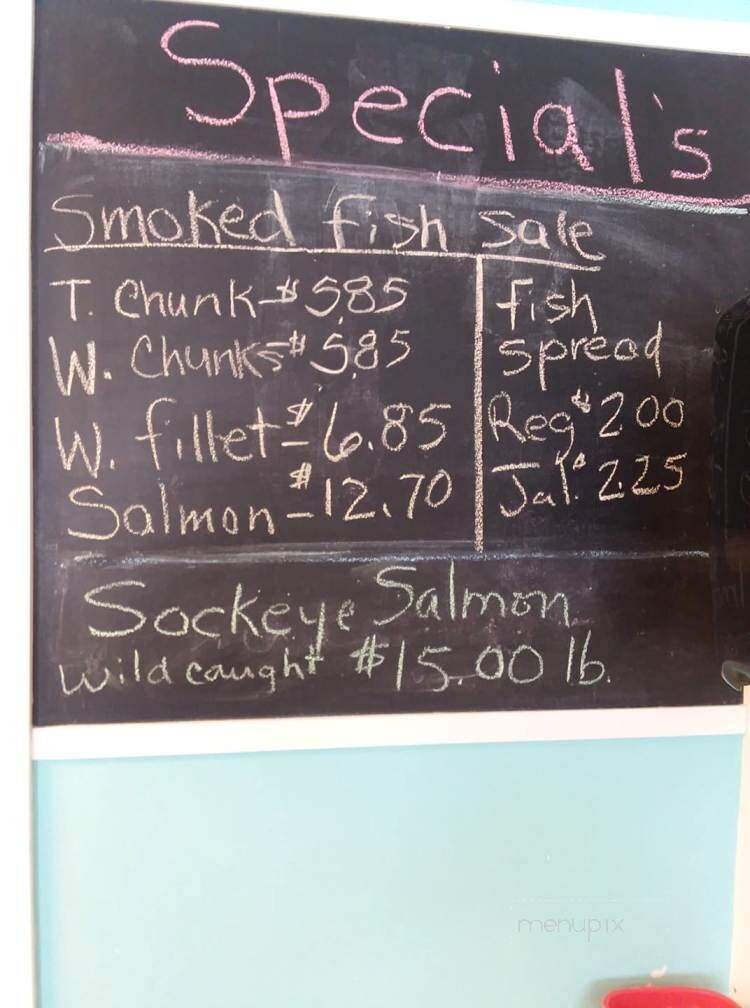 Special's
Smoked fish sale
T. Chunk - $5.85
W. Chunks $5.85
W. fillet - $6.85
Salmon - $12.70
fish
spread
Reg $2.00
Jal. $2.25
Sockeye Salmon
Wild caught $15.00 lb.
menupix